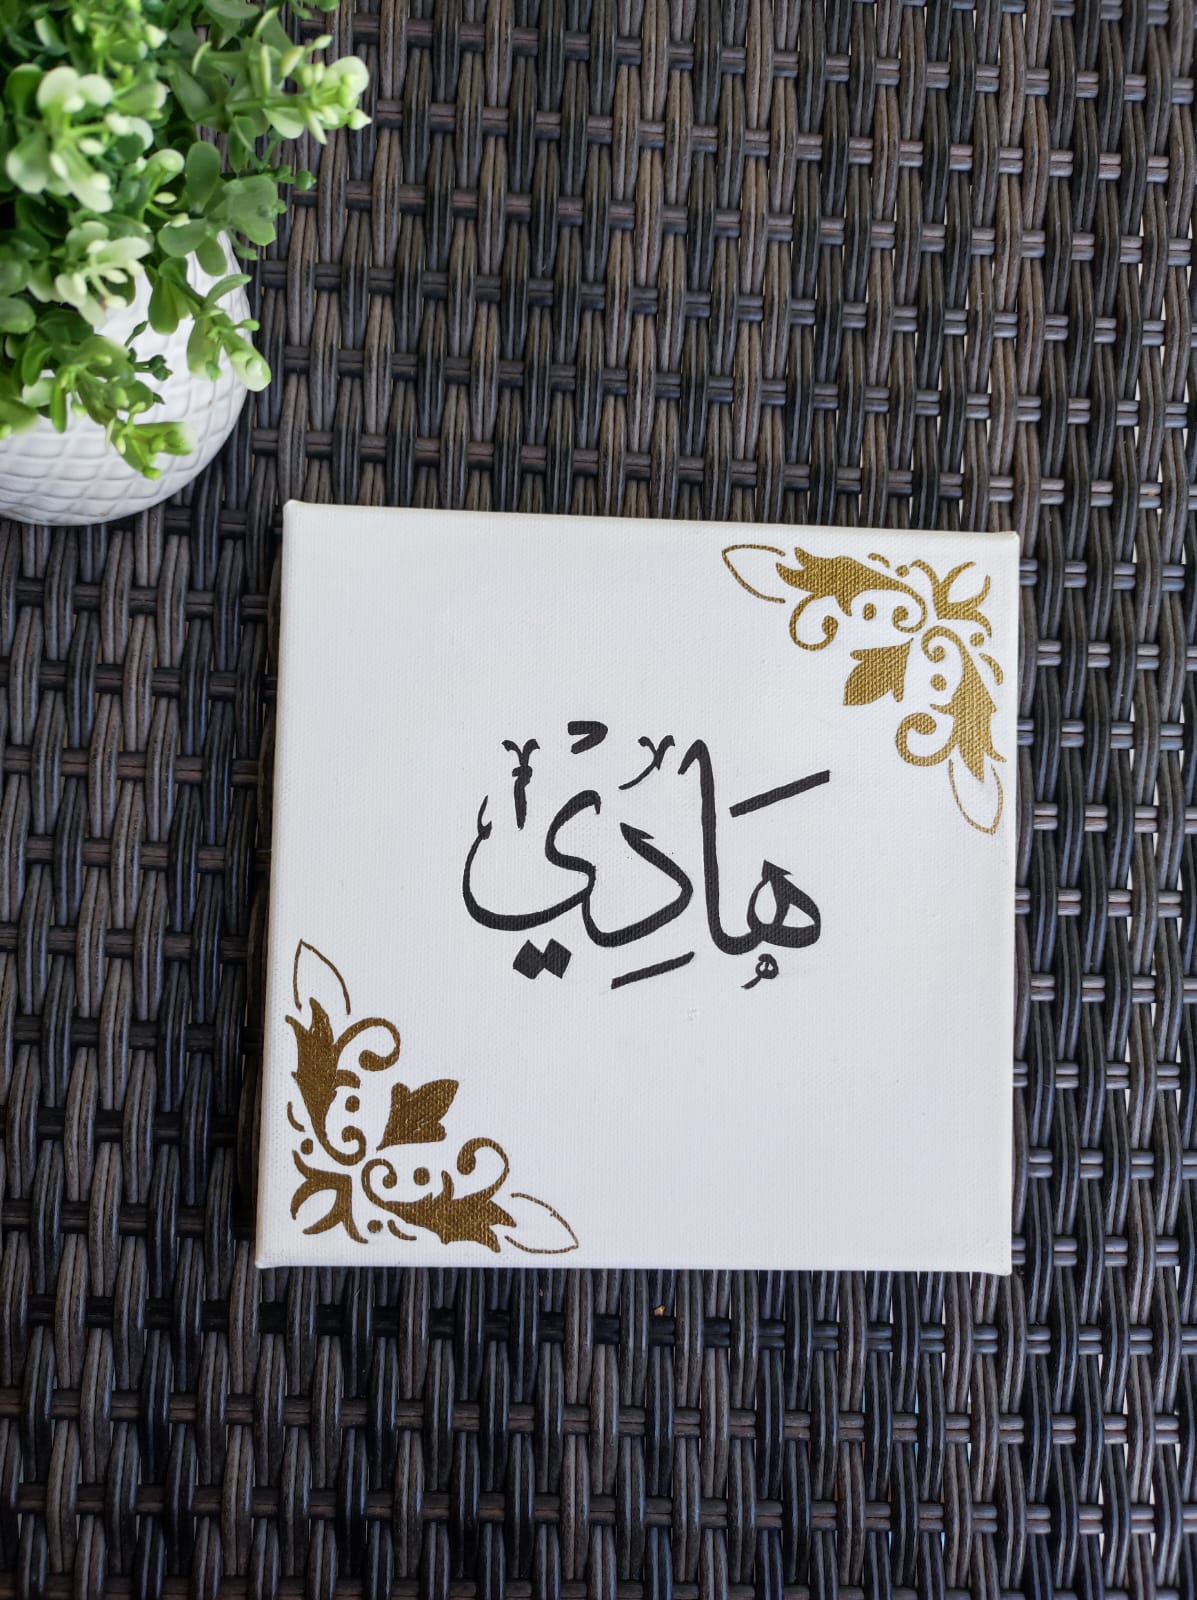 هَادِيْ